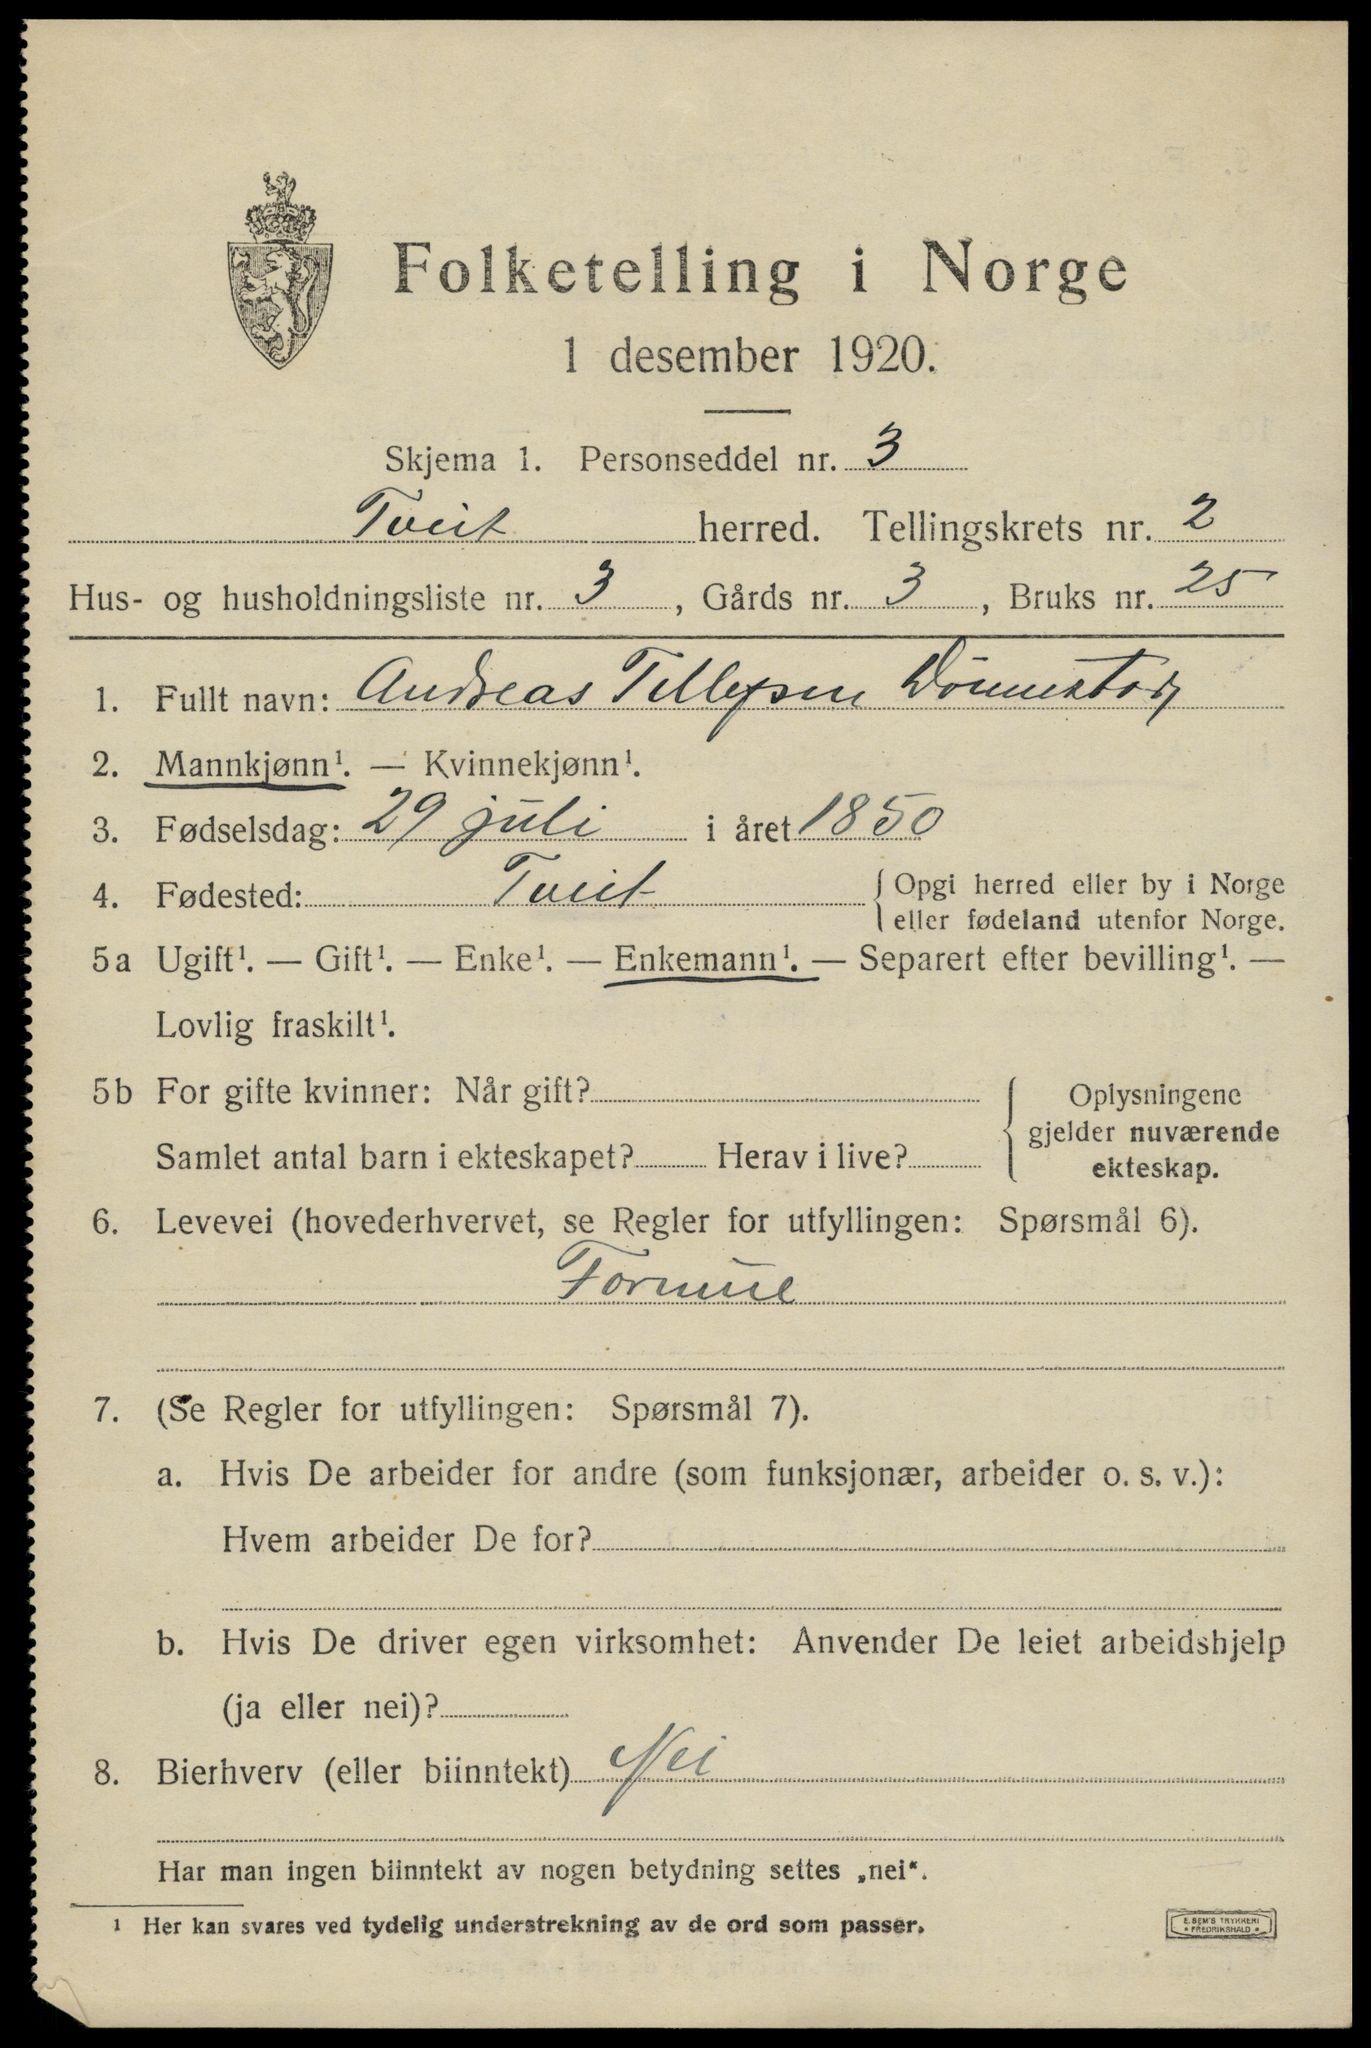 Folketelling i Norge
1 desember 1920.
Skjema 1. Personseddel nr. 3
Tveit herred. Tellingskrets nr. 2
Hus- og husholdningsliste nr. 3, Gårds nr. 3, Bruks nr. 25
1. Fullt navn: Andreas Tellefsen Dønnestad
2. Mannkjønn¹. — Kvinnekjønn¹.
3. Fødselsdag: 29 juli i året 1850
4. Fødested: Tveit { Opgi herred eller by i Norge
eller fødeland utenfor Norge.
5a Ugift¹. — Gift¹. — Enke¹. — Enkemann¹. — Separert efter bevilling¹. —
Lovlig fraskilt¹.
5b For gifte kvinner: Når gift?
Samlet antal barn i ekteskapet? Herav i live?
Oplysningene
gjelder nuværende
ekteskap.
6. Levevei (hovederhvervet, se Regler for utfyllingen: Spørsmål 6).
Formue
7. (Se Regler for utfyllingen: Spørsmål 7).
a. Hvis De arbeider for andre (som funksjonær, arbeider o. s. v.):
Hvem arbeider De for?
b. Hvis De driver egen virksomhet: Anvender De leiet arbeidshjelp
(ja eller nei)?
8. Bierhverv (eller biinntekt) Nei
Har man ingen biinntekt av nogen betydning settes „nei“.
¹ Her kan svares ved tydelig understrekning av de ord som passer.
E. SEM'S TRYKKERI
• FREDRIKSHALD •